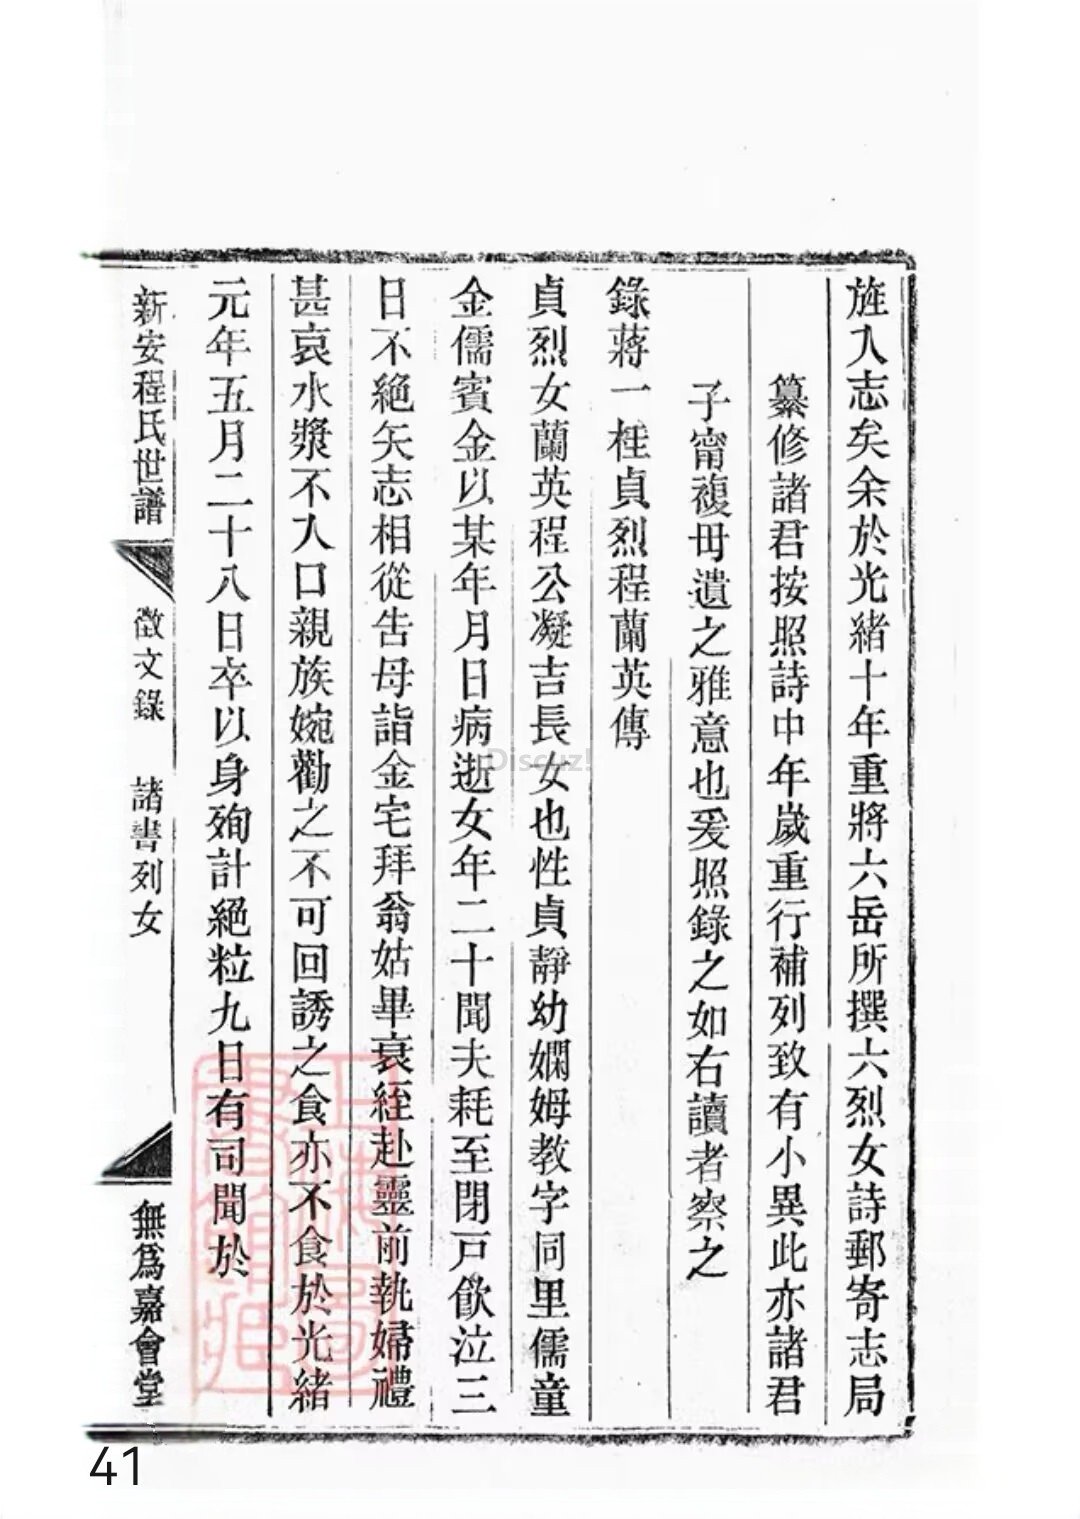 旌入志矣余於光緒十年重將六岳所撰六烈女詩郵寄志局
纂修諸君按照詩中年歲重行補列致有小異此亦諸君
子甯複毋遺之雅意也爰照錄之如右讀者察之
錄蔣一桂貞烈程蘭英傳
貞烈女蘭英程公凝吉長女也性貞靜幼嫻姆教字同里儒童
金儒賓金以某年月日病逝女年二十聞夫耗至閉戸飲泣三
日不絕矢志相從告母詣金宅拜翁姑畢衰絰赴靈前執婦禮
甚哀水漿不入口親族婉勸之不可回誘之食亦不食於光緒
元年五月二十八日卒以身殉計絕粒九日有司聞於
新安程氏世譜
徵文錄 諸書列女
無爲嘉會堂
Discuz!
上海圖書館藏
41